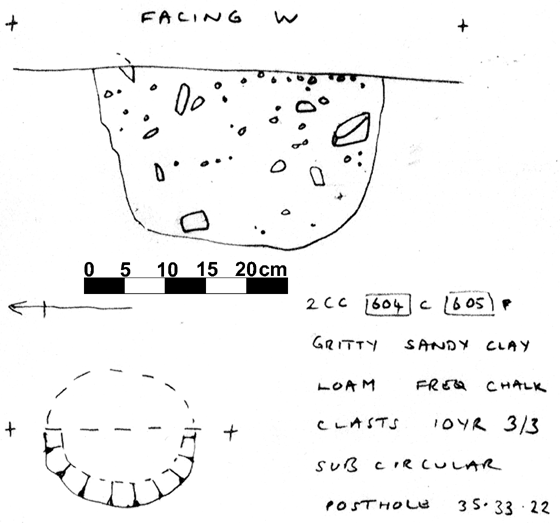 FACING W
0 5 10 15 20 cm
2CC 604 C 605 F
GRITTY SANDY CLAY
LOAM FREQ CHALK
CLASTS 10YR 3/3
SUB CIRCULAR
POSTHOLE 35.33.22